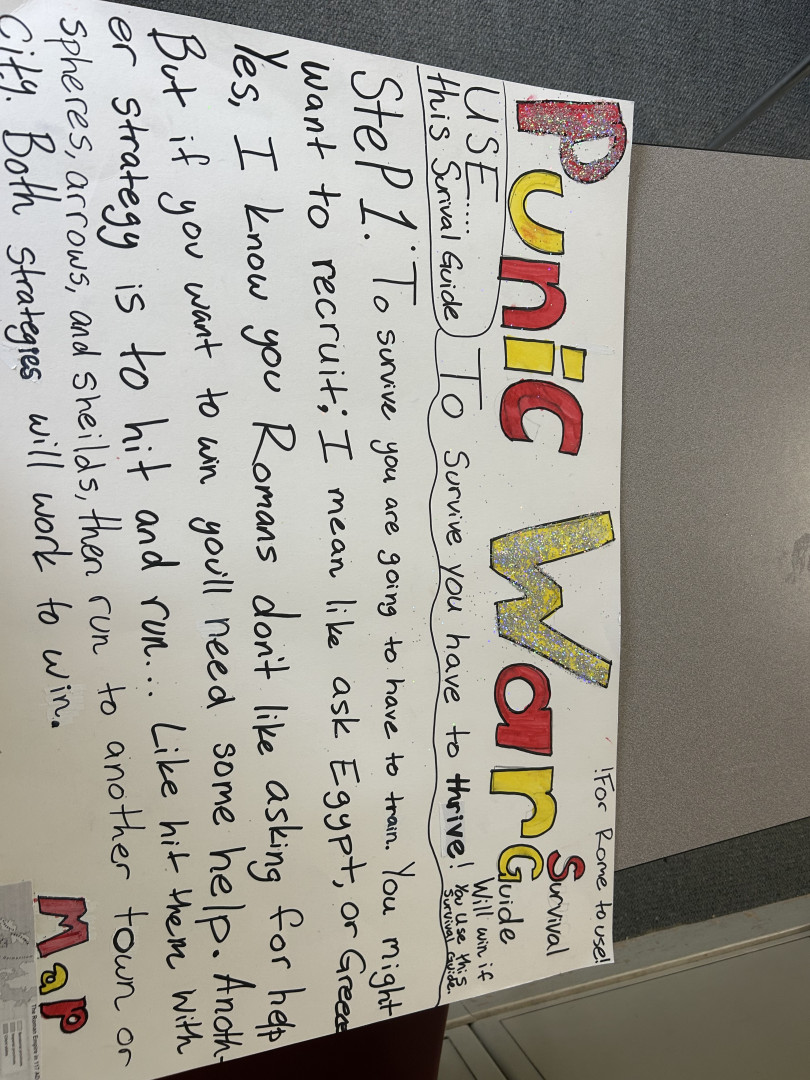 !For Rome to use!
Punic War
Survival
Guide
Will win if
You use this
survival guide.
USE....
this Surival Guide
To Survive you have to thrive!
SteP 1: To survive you are going to have to train. You might
want to recruit; I mean like ask Egypt, or Greece
Yes, I know you Romans don't like asking for help
But if you want to win you'll need some help. Anoth-
er strategy is to hit and run... Like hit them with
spheres, arrows, and sheilds, then run to another town or
City. Both strategies will work to win.
MaP
The Roman Empire in 117 AD